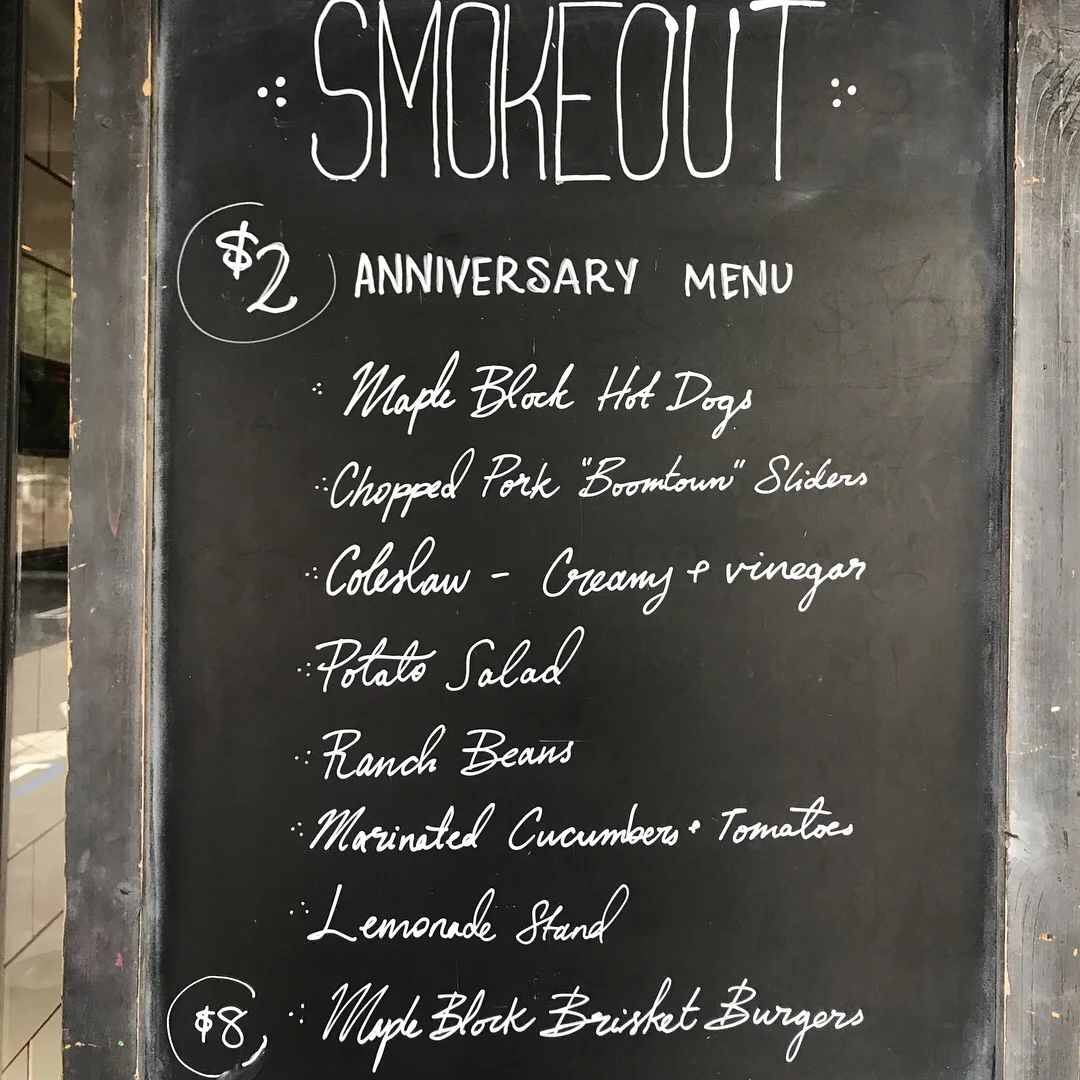 SMOKEOUT
$2 ANNIVERSARY MENU
Maple Block Hot Dogs
Chopped Pork "Boomtown" Sliders
Coleslaw - Creamy + vinegar
Potato Salad
Ranch Beans
Marinated Cucumbers + Tomatoes
Lemonade Stand
$8 Maple Block Brisket Burgers